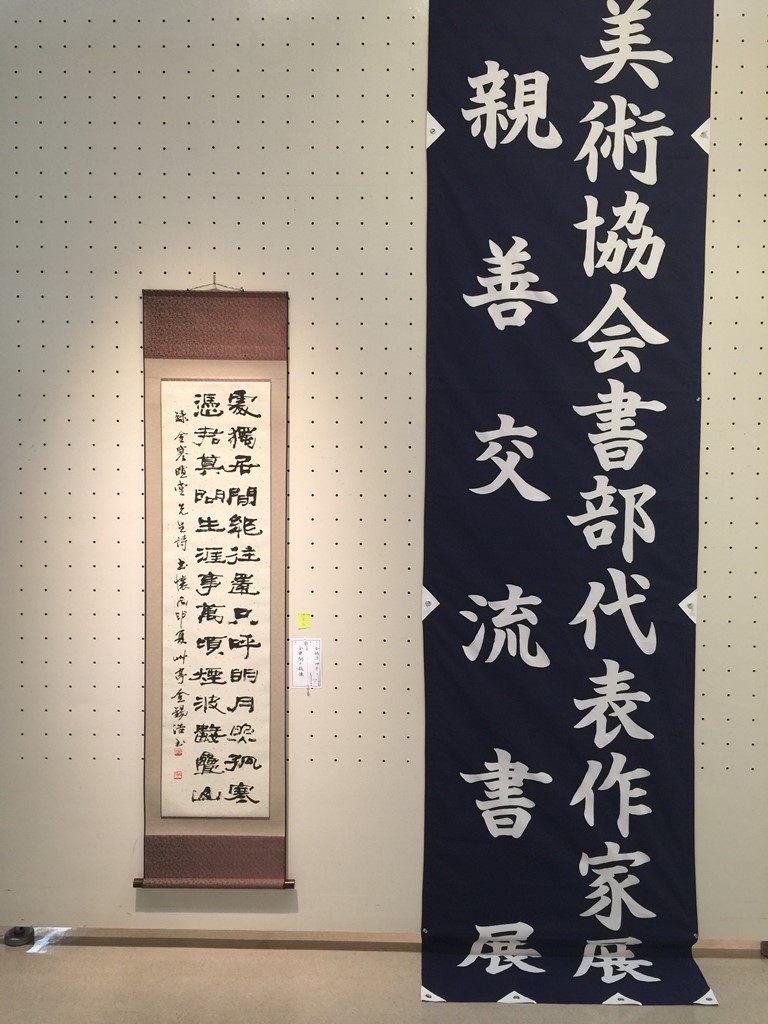 美術協会書部代表作家展
親善交流書展
處獨居閒絶往還只呼明月照孤寒
憑君莫問生涯事萬頃煙波數疊山
錄金寒暄堂先生詩書懷丙申夏艸亭金錫